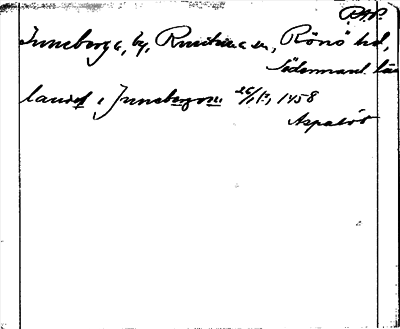 RAP.
Inneberga, by, Runtuna sn, Rönö hd,
Södermanl. län
landet i Jnnebergom 26/12 1458
Aspalöt